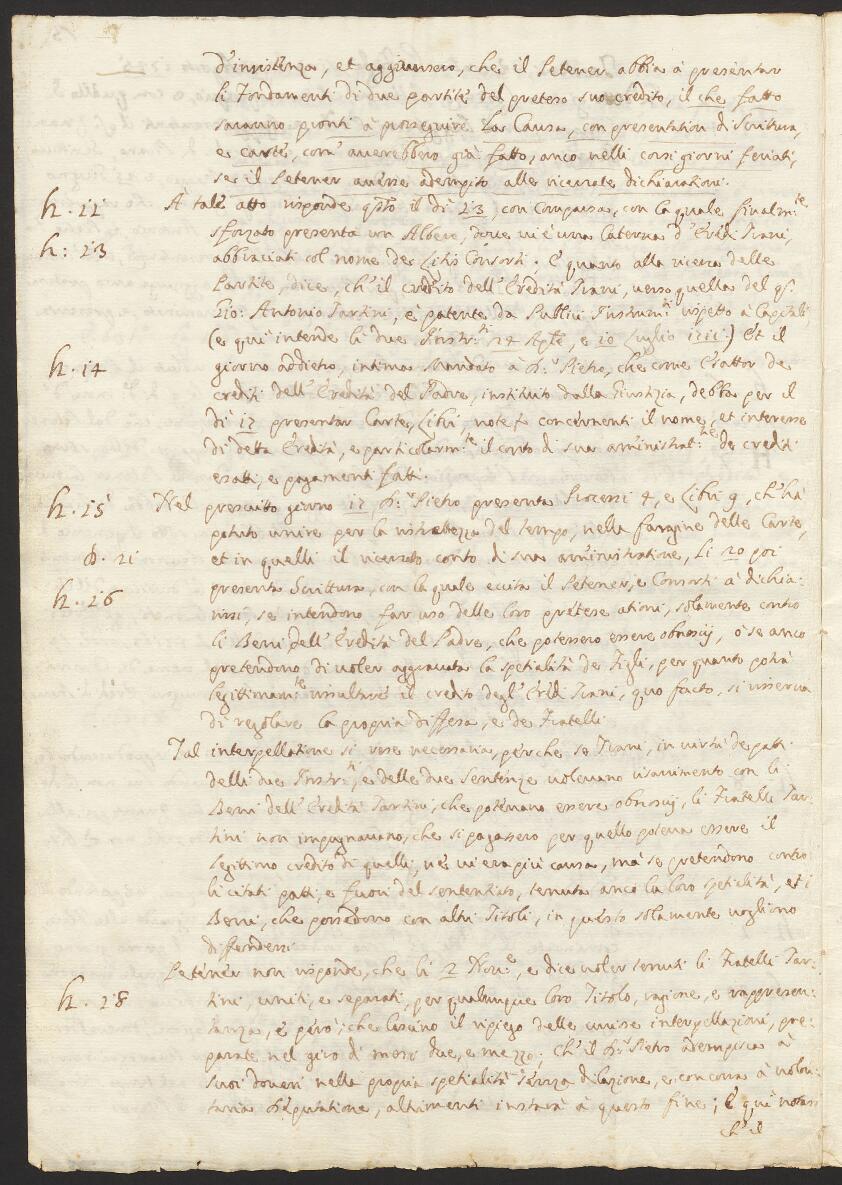 d'insistenza, et aggiunsero, che il Petener abbia à presentar
li Fondamenti di due partite del preteso suo credito, il che fatto
saranno pronti à proseguire la Causa, con presentation di Scrittura,
e carte, com' auerebbero già fatto, anco nelli corsi giorni feriati,
se il Petener auesse adempito alle ricercate dichiarationi.
h. 11 À tale atto risponde qsto il dì 23, con Comparsa, con la quale finalm:te
sforzato presenta un Albero, doue ui è una Caterua d'Eredi Trani,
h: 23 abbracciati col nome de Litis Consorti; E quanto alla ricerca delle
Partite, dice, ch'il credito dell'Eredità Trani, uerso quella del q:
Gio: Antonio Tartini, è patente da Publici Instrum:ti rispetto à Capitali,
(e qui intende li due Instr:ti 24 Aple, e 10 Luglio 1711.) Et il
h. 14 giorno addietro, intima Mandato à D: Pietro, che come Esattor de
crediti dell'Eredità del Padre, instituito dalla Giustizia, debba per il
dì 17 presentar Carte, Libri, note concernenti il nome, et interesse
di detta Eredità, e particolarm:te il conto di sua aministrat:ne de crediti
esatti, e pagamenti fatti.
h. 15 Nel prescritto giorno 17 D: Pietro presenta Processi 4, e Libri 9, ch'hà
potuto unire per la ristrettezza del tempo, nella faragine delle Carte,
d. 21 et in quelli il ricercato conto di sua aministratione, Li 20 poi
h. 26 presenta Scrittura, con la quale eccita il Petener, e Consorti à dichia-
rirsi, se intendono far uso delle loro pretese ationi, solamente contro
li Beni dell'Eredità del Padre, che potessero essere obnoxij, ò se anco
pretendono di uoler aggrauata la spetialità de Figli, per quanto potrà
legittimam:te risultare il credito degl'Eredi Trani, quo facto, si riserua
di regolare la propria diffesa, e de Fratelli.
Tal interpellatione si rese necessaria, perche se Trani, in uirtù de patti
delli due Instr:ti, e delle due sentenze uoleuano risarcimento con li
Beni dell'Eredità Tartini, che poteuano essere obnoxij, li Fratelli Tar-
tini non impugnauano, che si pagassero per quello poteua essere il
legittimo credito di quelli, nè ui era più causa, mà se pretendono contro
li citati patti, e fuori del sententiato, tenuta anco la loro spetialità, et i
Beni, che possedono con altri Titoli, in questo solamente uogliono
diffendersi
Petener non risponde, che li 2 Nou:e, e dice uoler tenuti li Fratelli Tar-
h. 28 tini, uniti, e separati, per qualunque loro Titolo, ragione, e rappresen-
tanza, e però, che lascino il ripiego delle interpellazioni, pre-
parate nel giro di mesi due, e mezzo; Ch'il D: Pietro adempisca à
suoi doueri nella propria spetialità senza dilazione, e concorra à uolon-
taria deputatione, altrimenti instarà à questo fine; E qui notasi
ch'il